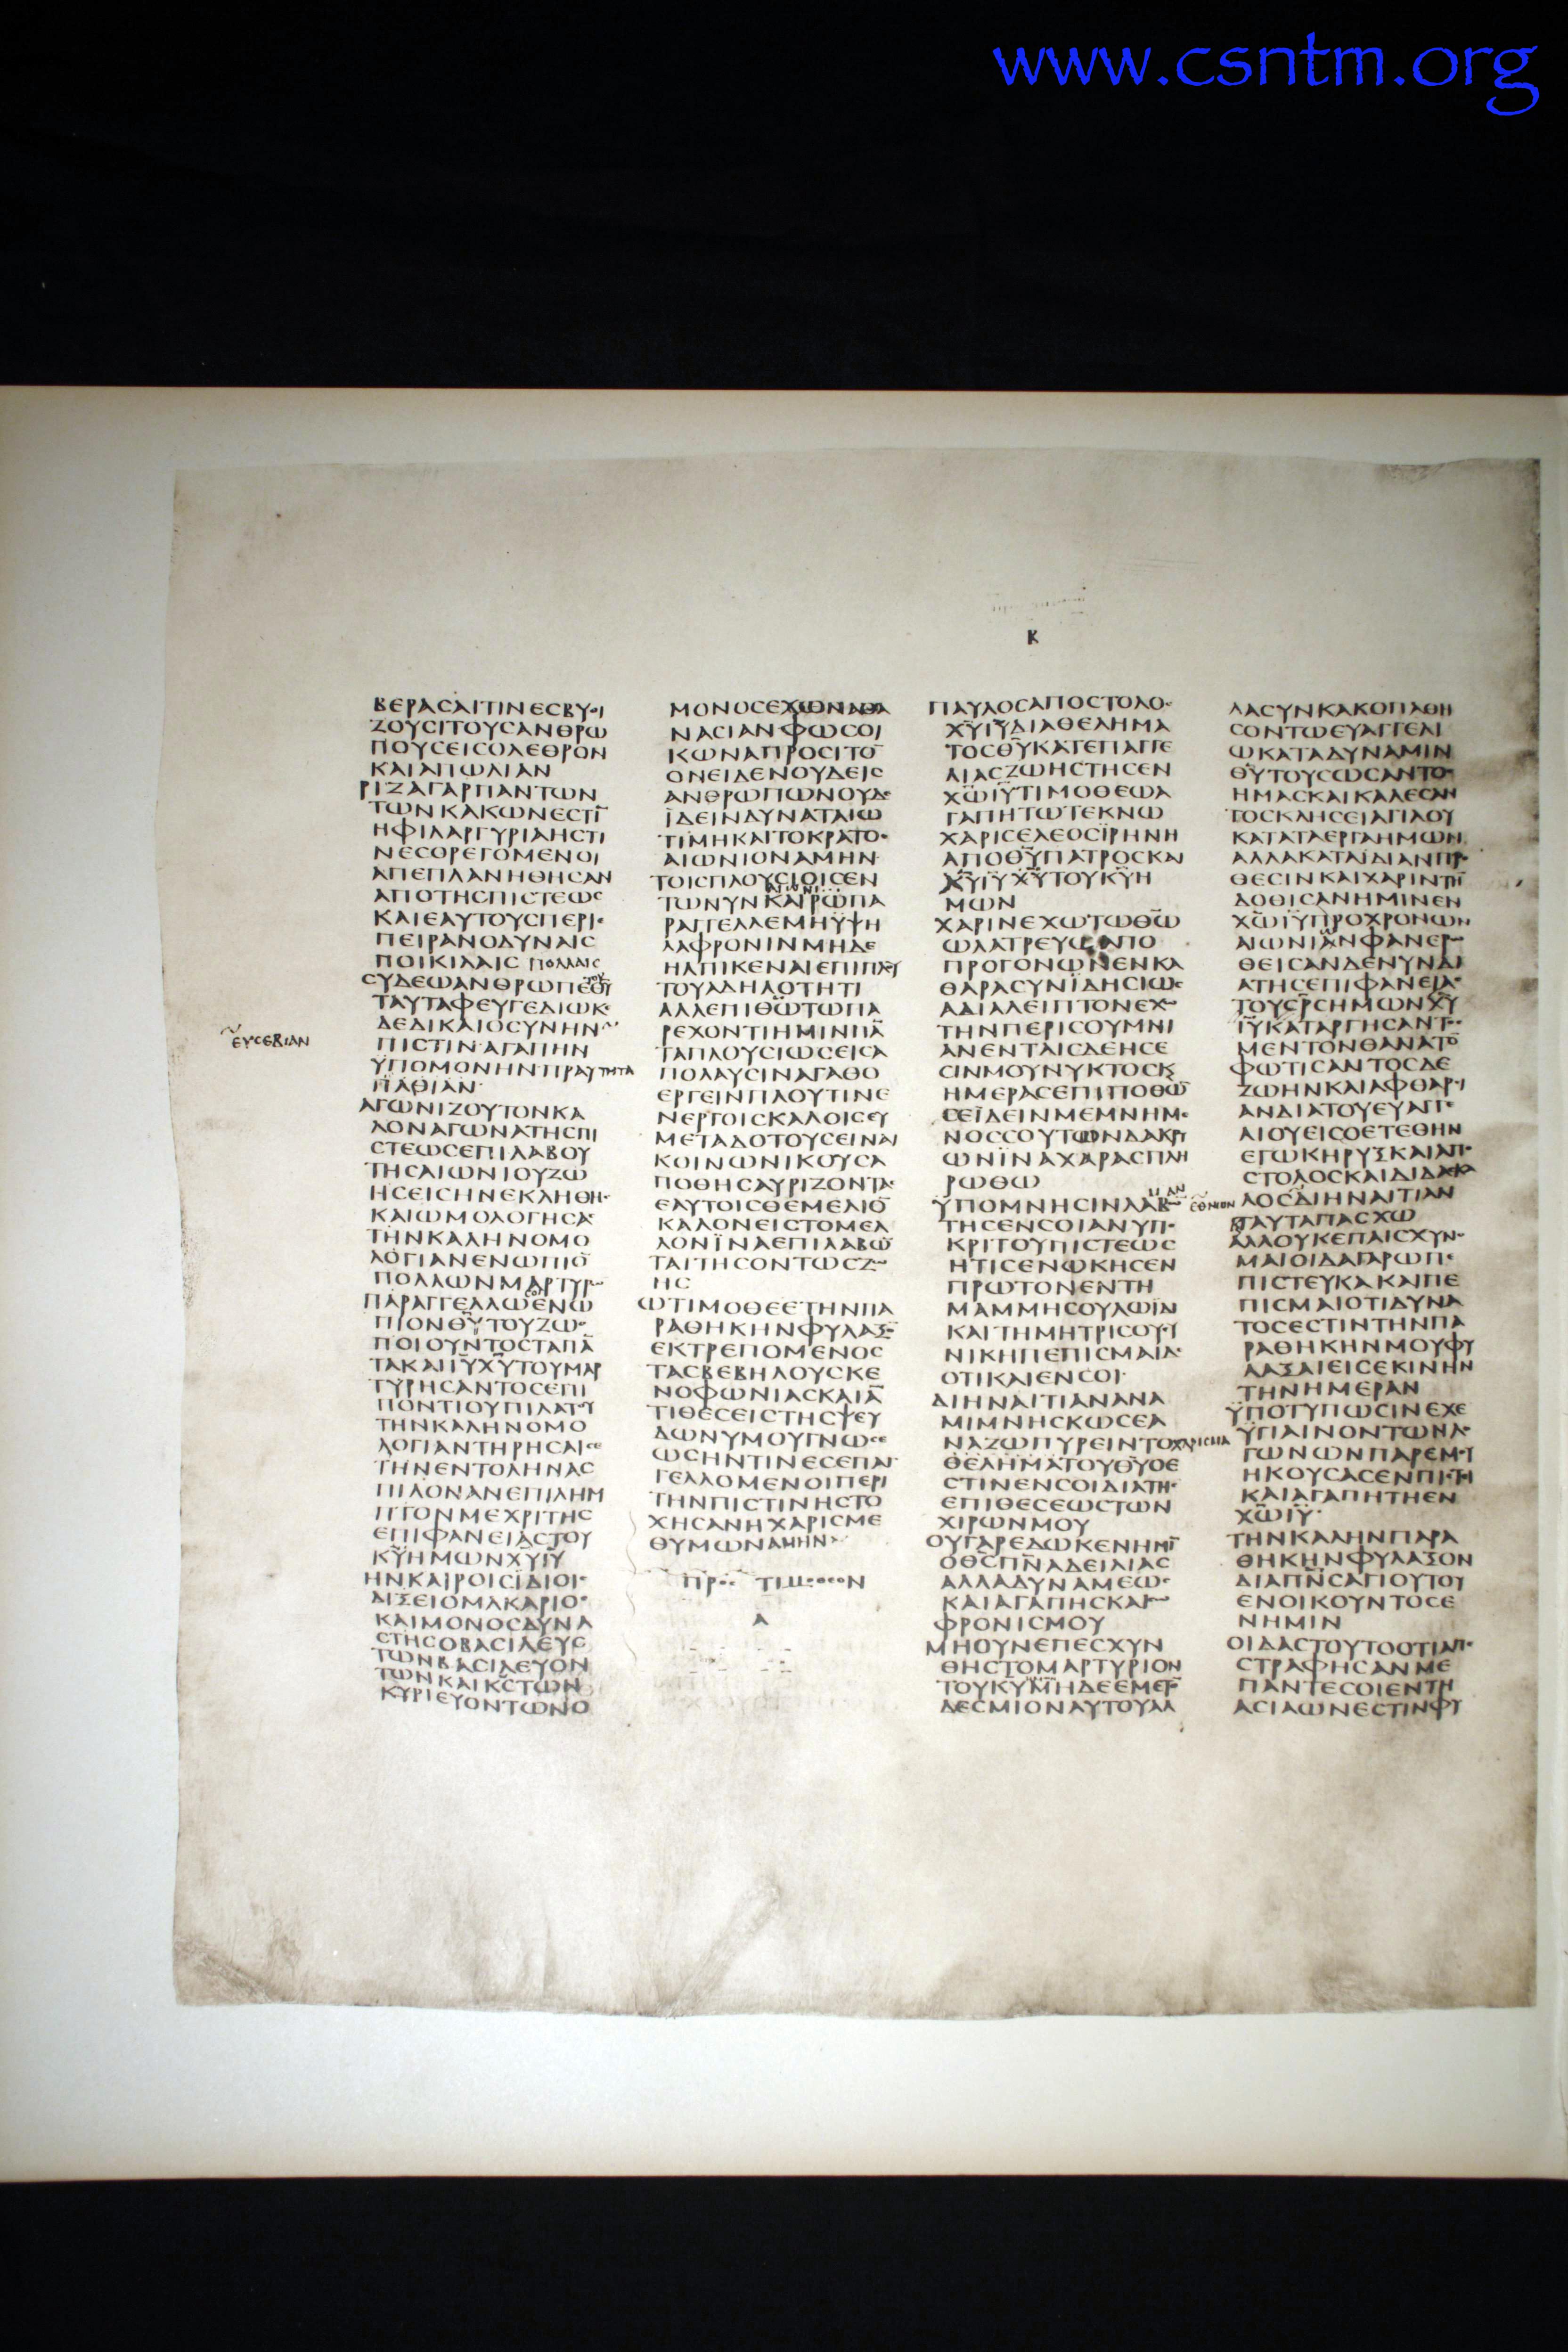 www.csntm.org
Β
ΒΕΡΑϹΑΙΤΙΝΕϹΒΥΘΙ
ΖΟΥϹΙΤΟΥϹΑΝΘΡΩ
ΠΟΥϹΕΙϹΟΛΕΘΡΟΝ
ΚΑΙΑΠΩΛΙΑΝ
ΡΙΖΑΓΑΡΠΑΝΤΩΝ
ΤΩΝΚΑΚΩΝΕϹΤΙ̅
ΗΦΙΛΑΡΓΥΡΙΑΗϹΤΙ
ΝΕϹΟΡΕΓΟΜΕΝΟΙ
ΑΠΕΠΛΑΝΗΘΗϹΑΝ
ΑΠΟΤΗϹΠΙϹΤΕΩϹ
ΚΑΙΕΑΥΤΟΥϹΠΕΡΙΕ
ΠΕΙΡΑΝΟΔΥΝΑΙϹ
ΠΟΙΚΙΛΑΙϹ ΠΟΛΛΑΙϹ
ϹΥΔΕΩΑΝΘΡΩΠΕΤΟΥΘΥ̅
ΤΑΥΤΑΦΕΥΓΕΔΙΩΚΕ
ΔΕΔΙΚΑΙΟϹΥΝΗΝ
ΕΥϹΕΒΙΑΝ
ΠΙϹΤΙΝ·ΑΓΑΠΗΝ
ΥΠΟΜΟΝΗΝ·ΠΡΑΥΤΗΤΑ
ΠΑΘΙΑΝ·
ΑΓΩΝΙΖΟΥΤΟΝΚΑ
ΛΟΝΑΓΩΝΑΤΗϹΠΙ
ϹΤΕΩϹΕΠΙΛΑΒΟΥ
ΤΗϹΑΙΩΝΙΟΥΖΩ
ΗϹΕΙϹΗΝΕΚΛΗΘΗϹ
ΚΑΙΩΜΟΛΟΓΗϹΑϹ
ΤΗΝΚΑΛΗΝΟΜΟ
ΛΟΓΙΑΝΕΝΩΠΙΟ̅
ΠΟΛΛΩΝΜΑΡΤΥΡΩ̅
ΠΑΡΑΓΓΕΛΛΩϹΟΙΕΝΩ
ΠΙΟΝΘΥ̅ΤΟΥΖΩΟ
ΠΟΙΟΥΝΤΟϹΤΑΠΑ̅
ΤΑΚΑΙΙΥ̅ΧΥ̅ΤΟΥΜΑΡ
ΤΥΡΗϹΑΝΤΟϹΕΠΙ
ΠΟΝΤΙΟΥΠΙΛΑΤΟΥ
ΤΗΝΚΑΛΗΝΟΜΟ
ΛΟΓΙΑΝΤΗΡΗϹΑΙϹΕ
ΤΗΝΕΝΤΟΛΗΝΑϹ
ΠΙΛΟΝΑΝΕΠΙΛΗΜ
ΠΤΟΝΜΕΧΡΙΤΗϹ
ΕΠΙΦΑΝΕΙΑϹΤΟΥ
ΚΥ̅ΗΜΩΝΧΥ̅ΙΥ̅
ΗΝΚΑΙΡΟΙϹΪΔΙΟΙϹ
ΔΙΞΕΙΟΜΑΚΑΡΙΟϹ
ΚΑΙΜΟΝΟϹΔΥΝΑ
ϹΤΗϹΟΒΑϹΙΛΕΥϹ
ΤΩΝΒΑϹΙΛΕΥΟΝ
ΤΩΝΚΑΙΚϹ̅ΤΩΝ
ΚΥΡΙΕΥΟΝΤΩΝΟ
ΜΟΝΟϹΕΧΩΝΑΘΑ
ΝΑϹΙΑΝΦΩϹΟΙ
ΚΩΝΑΠΡΟϹΙΤΟ̅
ΟΝΕΙΔΕΝΟΥΔΕΙϹ
ΑΝΘΡΩΠΩΝΟΥΔΕ
ΪΔΕΙΝΔΥΝΑΤΑΙΩ
ΤΙΜΗΚΑΙΤΟΚΡΑΤΟϹ
ΑΙΩΝΙΟΝΑΜΗΝ·
ΤΟΙϹΠΛΟΥϹΙΟΙϹΕΝ
ΑΙΩΝΙ
ΤΩΝΥΝΚΑΙΡΩΠΑ
ΡΑΓΓΕΛΛΕΜΗΥΨΗ
ΛΑΦΡΟΝΙΝΜΗΔΕ
ΗΛΠΙΚΕΝΑΙΕΠΙΠΛΟΥ
ΤΟΥΑΔΗΛΟΤΗΤΙ
ΑΛΛΕΠΙΘΩ̅ΤΩΠΑ
ΡΕΧΟΝΤΙΗΜΙΝΠΑ̅
ΤΑΠΛΟΥϹΙΩϹΕΙϹΑ
ΠΟΛΑΥϹΙΝΑΓΑΘΟ
ΕΡΓΕΙΝΠΛΟΥΤΙΝΕ
ΝΕΡΓΟΙϹΚΑΛΟΙϹΕΥ
ΜΕΤΑΔΟΤΟΥϹΕΙΝΑΙ
ΚΟΙΝΩΝΙΚΟΥϹΑ
ΠΟΘΗϹΑΥΡΙΖΟΝΤΑϹ
ΕΑΥΤΟΙϹΘΕΜΕΛΙΟ̅
ΚΑΛΟΝΕΙϹΤΟΜΕΛ
ΛΟΝΪΝΑΕΠΙΛΑΒΩ̅
ΤΑΙΤΗϹΟΝΤΩϹΖΩ
ΗϹ
ΩΤΙΜΟΘΕΕΤΗΝΠΑ
ΡΑΘΗΚΗΝΦΥΛΑΞΟ̅
ΕΚΤΡΕΠΟΜΕΝΟϹ
ΤΑϹΒΕΒΗΛΟΥϹΚΕ
ΝΟΦΩΝΙΑϹΚΑΙΑ̅
ΤΙΘΕϹΕΙϹΤΗϹΨΕΥ
ΔΩΝΥΜΟΥΓΝΩϹΕ
ΩϹΗΝΤΙΝΕϹΕΠΑΓ
ΓΕΛΛΟΜΕΝΟΙΠΕΡΙ
ΤΗΝΠΙϹΤΙΝΗϹΤΟ
ΧΗϹΑΝΗΧΑΡΙϹΜΕ
ΘΥΜΩΝΑΜΗΝ
ΠΡΟϹ ΤΙΜΟΘΕΟΝ
Α
ΠΑΥΛΟϹΑΠΟϹΤΟΛΟϹ
ΧΥ̅ΙΥ̅ΔΙΑΘΕΛΗΜΑ
ΤΟϹΘΥ̅ΚΑΤΕΠΑΓΓΕ
ΛΙΑϹΖΩΗϹΤΗϹΕΝ
ΧΩ̅ΙΥ̅ΤΙΜΟΘΕΩΑ
ΓΑΠΗΤΩΤΕΚΝΩ
ΧΑΡΙϹΕΛΕΟϹΪΡΗΝΗ
ΑΠΟΘΥ̅ΠΑΤΡΟϹΚΑΙ
ΧΥ̅ΙΥ̅ΧΥ̅ΤΟΥΚΥ̅Η
ΜΩΝ
ΧΑΡΙΝΕΧΩΤΩΘΩ̅
ΩΛΑΤΡΕΥΩΑΠΟ
ΠΡΟΓΟΝΩΝΕΝΚΑ
ΘΑΡΑϹΥΝΪΔΗϹΙΩϹ
ΑΔΙΑΛΕΙΠΤΟΝΕΧΩ
ΤΗΝΠΕΡΙϹΟΥΜΝΙ
ΑΝΕΝΤΑΙϹΔΕΗϹΕ
ϹΙΝΜΟΥΝΥΚΤΟϹΚϚ
ΗΜΕΡΑϹΕΠΙΠΟΘΩ̅
ϹΕΪΔΕΙΝΜΕΜΝΗΜΕ
ΝΟϹϹΟΥΤΩΝΔΑΚΡΥ
ΩΝΪΝΑΧΑΡΑϹΠΛΗ
ΡΩΘΩ
ΫΠΟΜΝΗϹΙΝΛΑΒΩ̅
ΤΗϹΕΝϹΟΙΑΝΥΠΟ
ΚΡΙΤΟΥΠΙϹΤΕΩϹ
ΗΤΙϹΕΝΩΚΗϹΕΝ
ΠΡΩΤΟΝΕΝΤΗ
ΜΑΜΜΗϹΟΥΛΩΪΔΙ
ΚΑΙΤΗΜΗΤΡΙϹΟΥΕΥ
ΝΙΚΗΠΕΠΙϹΜΑΙΔΕ
ΟΤΙΚΑΙΕΝϹΟΙ·
ΔΙΗΝΑΙΤΙΑΝΑΝΑ
ΜΙΜΝΗϹΚΩϹΕΑ
ΝΑΖΩΠΥΡΕΙΝΤΟΧΑΡΙϹΜΑ
ΘΕΛΗΜΑΤΟΥΘΥ̅ΟΕ
ϹΤΙΝΕΝϹΟΙΔΙΑΤΗϹ
ΕΠΙΘΕϹΕΩϹΤΩΝ
ΧΙΡΩΝΜΟΥ
ΟΥΓΑΡΕΔΩΚΕΝΗΜΙ̅
ΟΘϹ̅ΠΝ̅ΑΔΕΙΛΙΑϹ
ΑΛΛΑΔΥΝΑΜΕΩϹ
ΚΑΙΑΓΑΠΗϹΚΑΙϹΩ
ΦΡΟΝΙϹΜΟΥ
ΜΗΟΥΝΕΠΕϹΧΥΝ
ΘΗϹΤΟΜΑΡΤΥΡΙΟΝ
ΤΟΥΚΥ̅ΜΗΔΕΕΜΕΤΟ̅
ΔΕϹΜΙΟΝΑΥΤΟΥΑΛ
ΛΑϹΥΝΚΑΚΟΠΑΘΗ
ϹΟΝΤΩΕΥΑΓΓΕΛΙ
ΩΚΑΤΑΔΥΝΑΜΙΝ
ΘΥ̅ΤΟΥϹΩϹΑΝΤΟϹ
ΗΜΑϹΚΑΙΚΑΛΕϹΑΝ
ΤΟϹΚΛΗϹΕΙΑΓΙΑΟΥ
ΚΑΤΑΤΑΕΡΓΑΗΜΩΝ
ΑΛΛΑΚΑΤΑΪΔΙΑΝΠΡΟ
ΘΕϹΙΝΚΑΙΧΑΡΙΝΤΗ̅
ΔΟΘΙϹΑΝΗΜΙΝΕΝ
ΧΩ̅ΙΥ̅ΠΡΟΧΡΟΝΩΝ
ΑΙΩΝΙΑΝΦΑΝΕΡΩ
ΘΕΙϹΑΝΔΕΝΥΝΔΙ
ΑΤΗϹΕΠΙΦΑΝΕΙΑϹ
ΤΟΥϹΡϹ̅ΗΜΩΝΧΥ̅
ΙΥ̅ΚΑΤΑΡΓΗϹΑΝΤΟϹ
ΜΕΝΤΟΝΘΑΝΑΤΟ̅
ΦΩΤΙϹΑΝΤΟϹΔΕ
ΖΩΗΝΚΑΙΑΦΘΑΡϹΙ
ΑΝΔΙΑΤΟΥΕΥΑΓΓΕ
ΛΙΟΥΕΙϹΟΕΤΕΘΗΝ
ΕΓΩΚΗΡΥΞΚΑΙΑΠΟ
ϹΤΟΛΟϹΚΑΙΔΙΔΑϹΚΑ
ΕΘΝΩΝ
ΛΟϹΔΙΗΝΑΙΤΙΑΝ
ΤΑΥΤΑΠΑϹΧΩ
ΑΛΛΟΥΚΕΠΑΙϹΧΥΝΟ
ΜΑΙΟΙΔΑΓΑΡΩΠΕ
ΠΙϹΤΕΥΚΑΚΑΙΠΕ
ΠΙϹΜΑΙΟΤΙΔΥΝΑ
ΤΟϹΕϹΤΙΝΤΗΝΠΑ
ΡΑΘΗΚΗΝΜΟΥΦΥ
ΛΑΞΑΙΕΙϹΕΚΙΝΗΝ
ΤΗΝΗΜΕΡΑΝ
ΫΠΟΤΥΠΩϹΙΝΕΧΕ
ΫΓΙΑΙΝΟΝΤΩΝΛΟ
ΓΩΝΩΝΠΑΡΕΜΟΥ
ΗΚΟΥϹΑϹΕΝΠΙϹΤΙ
ΚΑΙΑΓΑΠΗΤΗΕΝ
ΧΩ̅ΙΥ̅·
ΤΗΝΚΑΛΗΝΠΑΡΑ
ΘΗΚΗΝΦΥΛΑΞΟΝ
ΔΙΑΠΝϹ̅ΑΓΙΟΥΤΟΥ
ΕΝΟΙΚΟΥΝΤΟϹΕ
ΝΗΜΙΝ
ΟΙΔΑϹΤΟΥΤΟΟΤΙΑΠΕ
ϹΤΡΑΦΗϹΑΝΜΕ
ΠΑΝΤΕϹΟΙΕΝΤΗ
ΑϹΙΑΩΝΕϹΤΙΝΦΥ